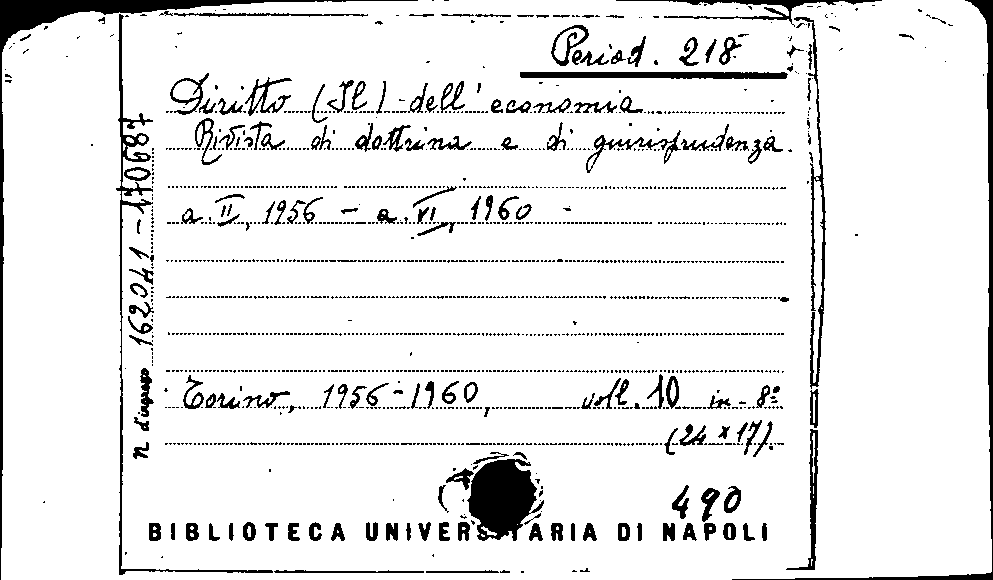 Period. 218
Diritto (Il) dell'economia
Rivista di dottrina e di giurisprudenza.
a. II, 1956 - a. VI, 1960 -
Torino, 1956-1960, voll. 10 in-8º
(24 x 17).
490
BIBLIOTECA UNIVERSITARIA DI NAPOLI
N. d'ingresso 162041-170687